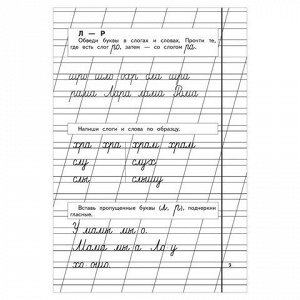 Л — Р
Обведи буквы в слогах и словах. Прочти те,
где есть слог ро, затем — со слогом ра.
рама Лара лама Рома
Напиши слоги и слова по образцу.
хра хра храм храм
слу слух
слы слышу
Вставь пропущенные буквы (л, р), подчеркни
гласные.
У мамы мы о.
Мама мы а Ла у